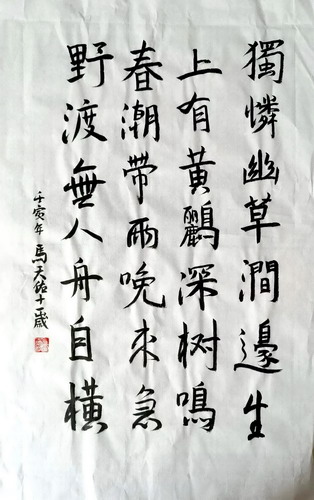 獨憐幽草澗邊生
上有黃鸝深树鳴
春潮帶雨晚來急
野渡無人舟自橫
壬寅年馬天佑十一歲